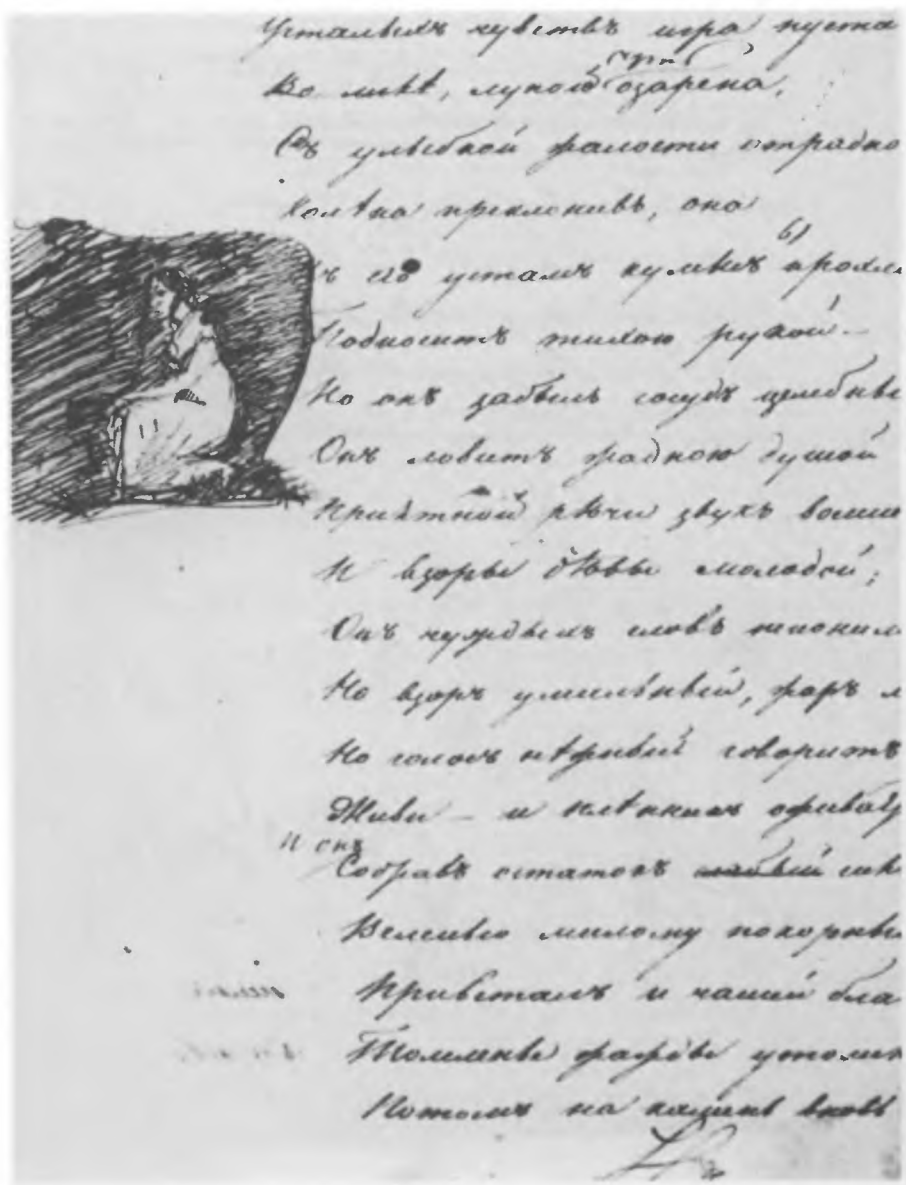 Усталыхъ чувствъ игра пуста
Но кто, луной озарена,
Съ улыбкой жалости отрадно
Колѣна преклонивъ, она
Къ его устамъ кумысъ прохла
Подноситъ тихою рукой —
Но онъ забылъ сосудъ целебны
Онъ ловитъ жадною душой
Пріятной рѣчи звукъ волше
И взоры дѣвы молодой;
Онъ чуждыхъ словъ не понима
Но взоръ умильный, жаръ л
Но голосъ нѣжный говоритъ
Живи — и плѣнникъ оживае
И онъ
Собравъ остатокъ слабый сил
Веленью милому покорны
Привсталъ и чашей бла
Томленье жажды утолил
Потомъ на камень вновь